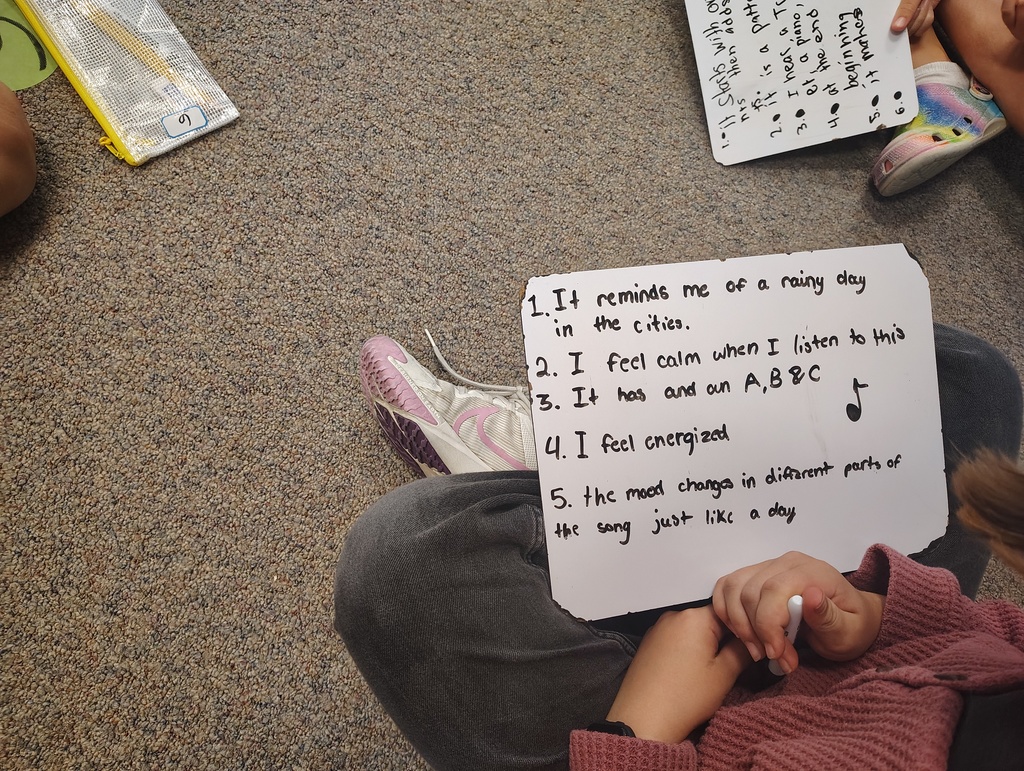 1. It reminds me of a rainy day
in the cities.
2. I feel calm when I listen to this
3. It has and an A, B & C
4. I feel energized
5. the mood changes in different parts of
the song just like a day
1. it starts with
then adds
is a
2. it
3. I hear a
of a piano,
at the end
4. at the
beginning
5. it makes
6.
9